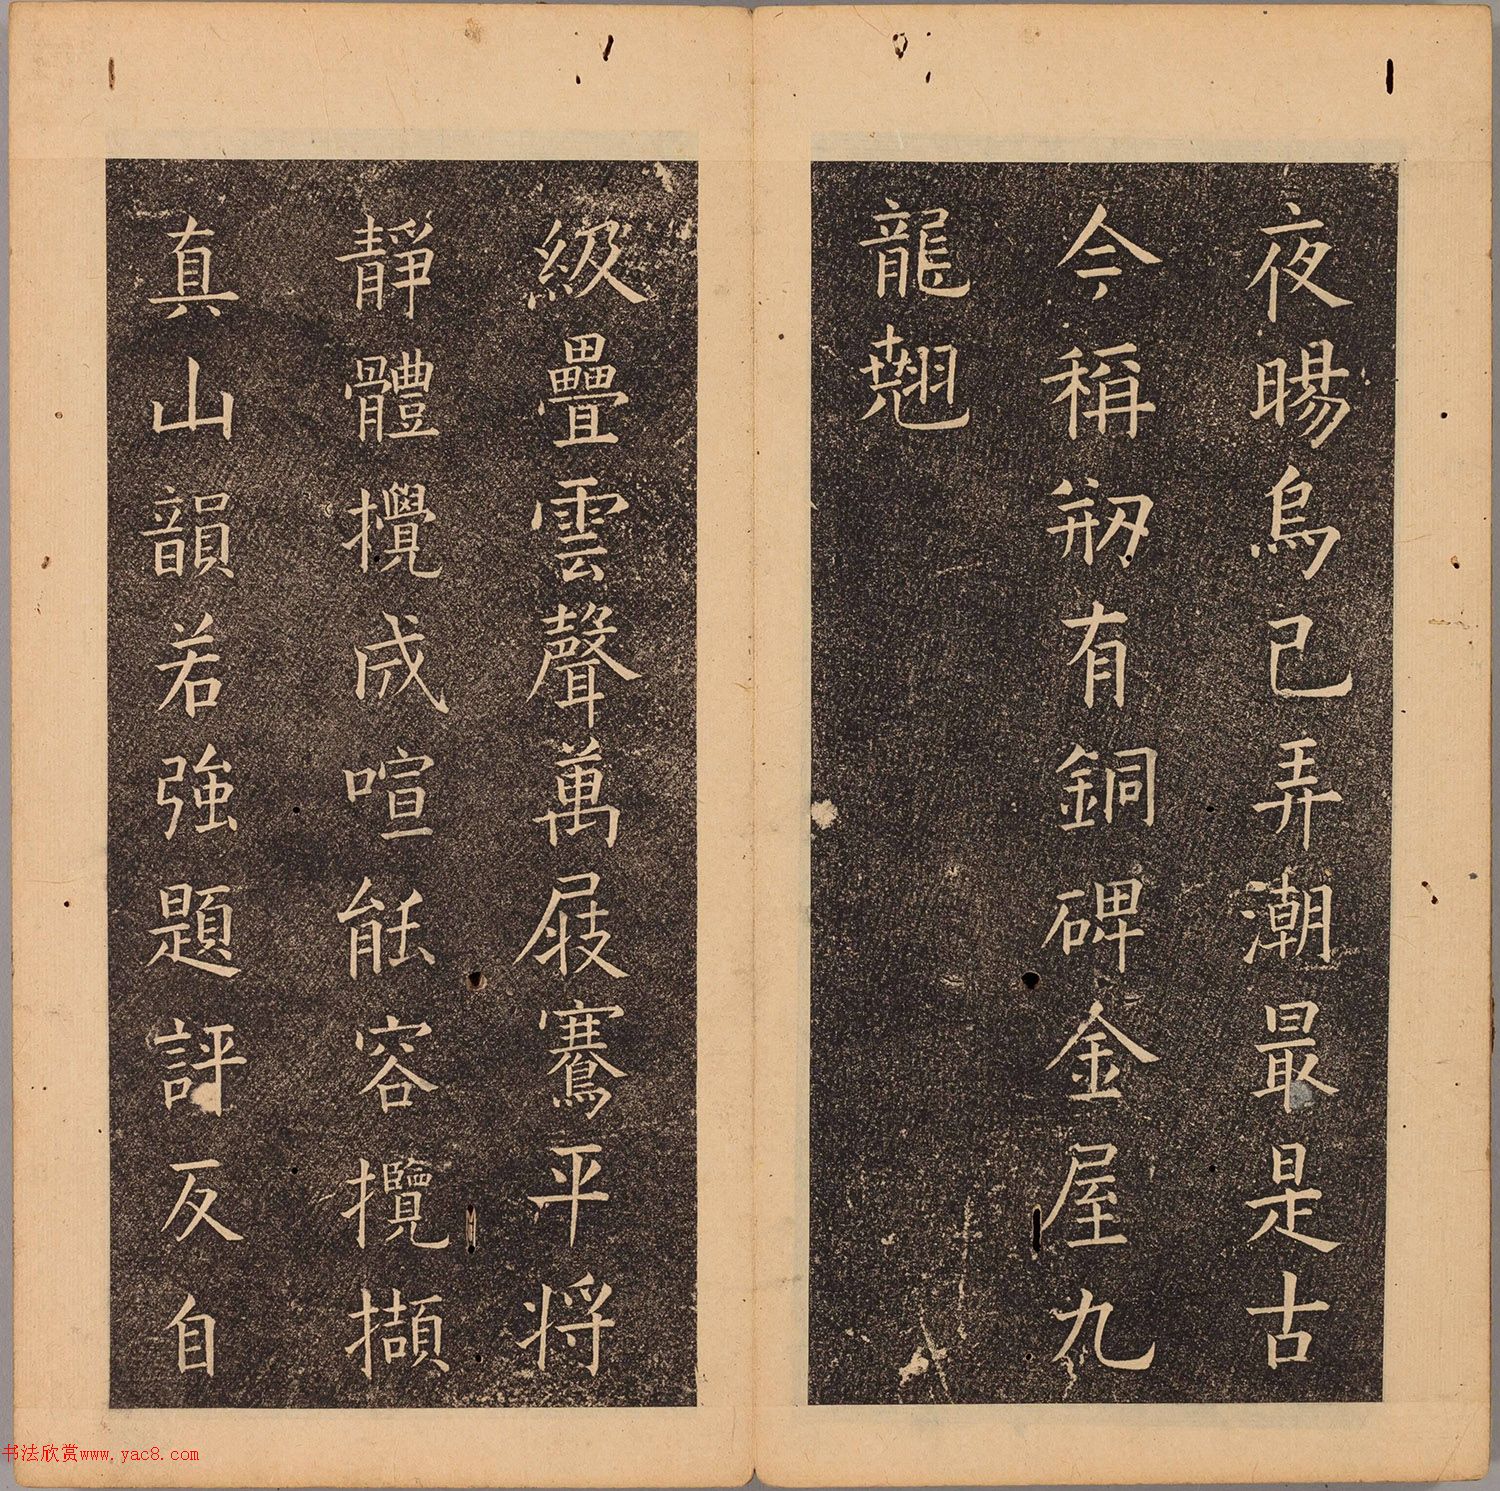 夜晹烏已弄潮最是古
今稱剏有銅碑金屋九
龍翹
級疊雲聲萬屐騫平將
靜體攪成喧能容攬擷
真山韻若強題評反自
书法欣赏www.yac8.com